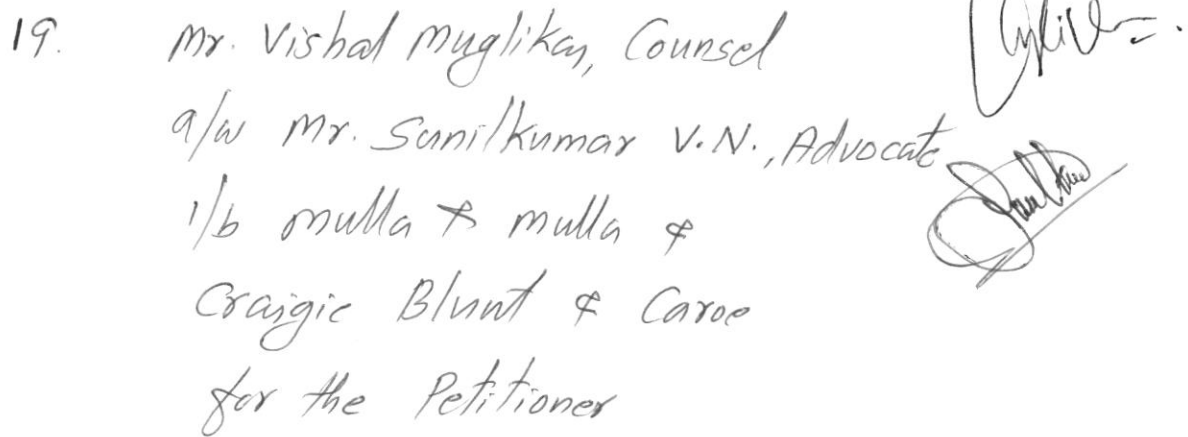 19. Mr. Vishal Muglikar, Counsel
a/w Mr. Sunilkumar V.N., Advocate
i/b mulla & mulla &
Craigie Blunt & Caroe
for the Petitioner